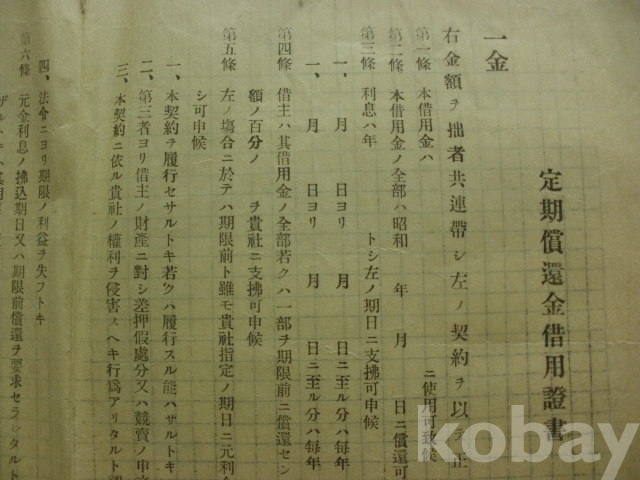 定期償還金借用證書
一金
右金額ヲ拙者共連帶シ左ノ契約ヲ以テ正
第一條 本借用金ハ ニ使用可致候
第二條 本借用金ノ全部ハ昭和 年 月 日ニ償還可
第三條 利息ハ年 トシ左ノ期日ニ支拂可申候
一、 月 日ヨリ 月 日ニ至ル分ハ每年
一、 月 日ヨリ 月 日ニ至ル分ハ每年
第四條 借主ハ其借用金ノ全部若クハ一部ヲ期限前ニ償還セン
額ノ百分ノ ヲ貴社ニ支拂可申候
第五條 左ノ塲合ニ於テハ期限前ト雖モ貴社指定ノ期日ニ元利
シ可申候
一、本契約ヲ履行セサルトキ若クハ履行スル能ハサルトキ
二、第三者ヨリ借主ノ財產ニ對シ差押假處分又ハ競賣ノ申
三、本契約ニ依ル貴社ノ權利ヲ侵害スヘキ行爲アリタルト
四、法令ニヨリ期限ノ利益ヲ失フトキ
第六條 元金利息ノ拂込期日又ハ期限前償還ヲ要求セラレタルト
kobay